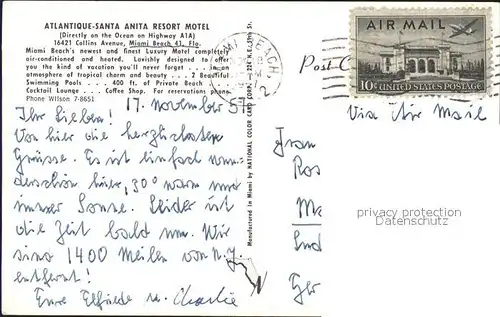 ATLANTIQUE-SANTA ANITA RESORT MOTEL
(Directly on the Ocean on Highway A1A)
16421 Collins Avenue, Miami Beach 41, Fla.
Miami Beach's newest and finest Luxury Motel completely
air-conditioned and heated. Lavishly designed to offer
you the kind of vacation you'll never forget . . . in an
atmosphere of tropical charm and beauty . . . 2 Beautiful
Swimming Pools . . . 400 ft. of Private Beach
Cocktail Lounge . . Coffee Shop. For reservations phone
Phone Wilson 7-8651
17. November 57
Ihr Lieben!
Von hier die herzlichsten
Grüsse. Es ist einfach wun-
derschön hier, 30° warm und
immer Sonne. Leider ist
die Zeit bald um. Wir
sind 1400 Meilen von N.Y.
entfernt!
Eure Elfriede u. Charlie
Manufactured in Miami by NATIONAL COLOR CARD CORP.
MIAMI BEACH
2
Post C
AIR MAIL
10¢ UNITED STATES POSTAGE
Via Air Mail
Frau
Ros
Ma
Ger
privacy protection